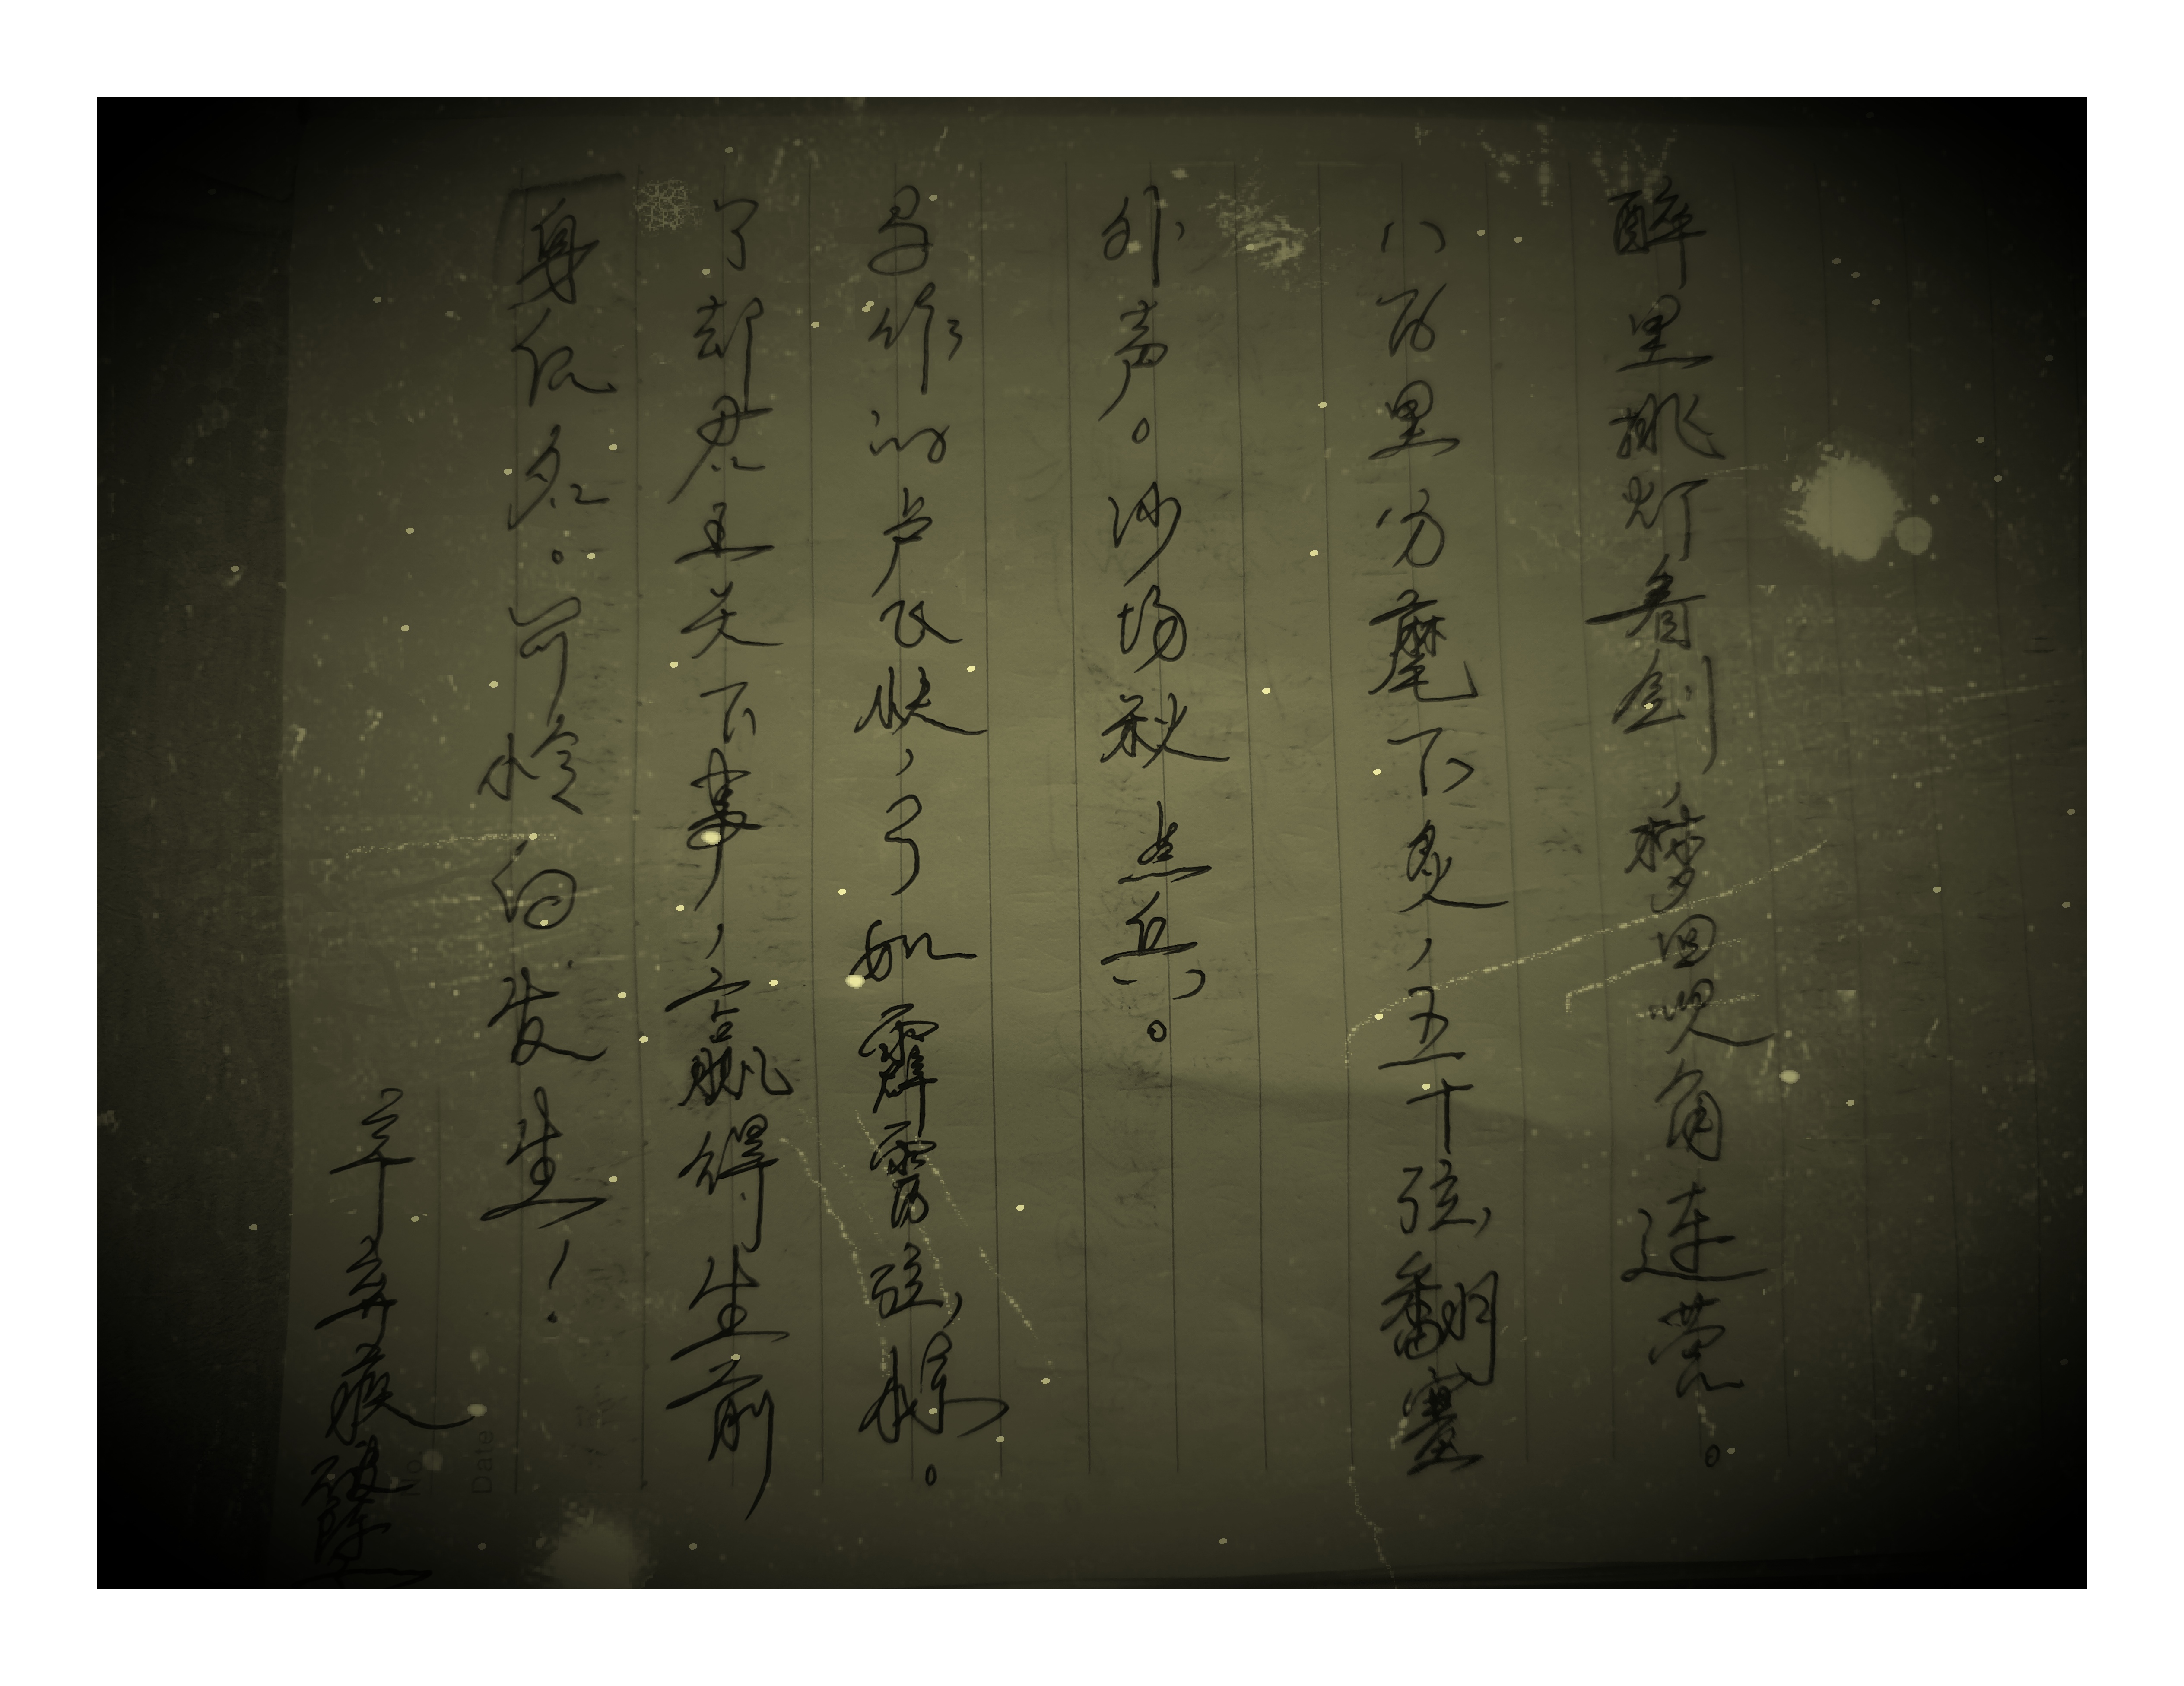 醉里挑灯看剑,梦回吹角连营。
八百里分麾下炙,五十弦翻塞
外声。沙场秋点兵。
马作的卢飞快,弓如霹雳弦惊。
了却君王天下事,赢得生前
身后名。可怜白发生!
辛弃疾破阵子
No.
Date